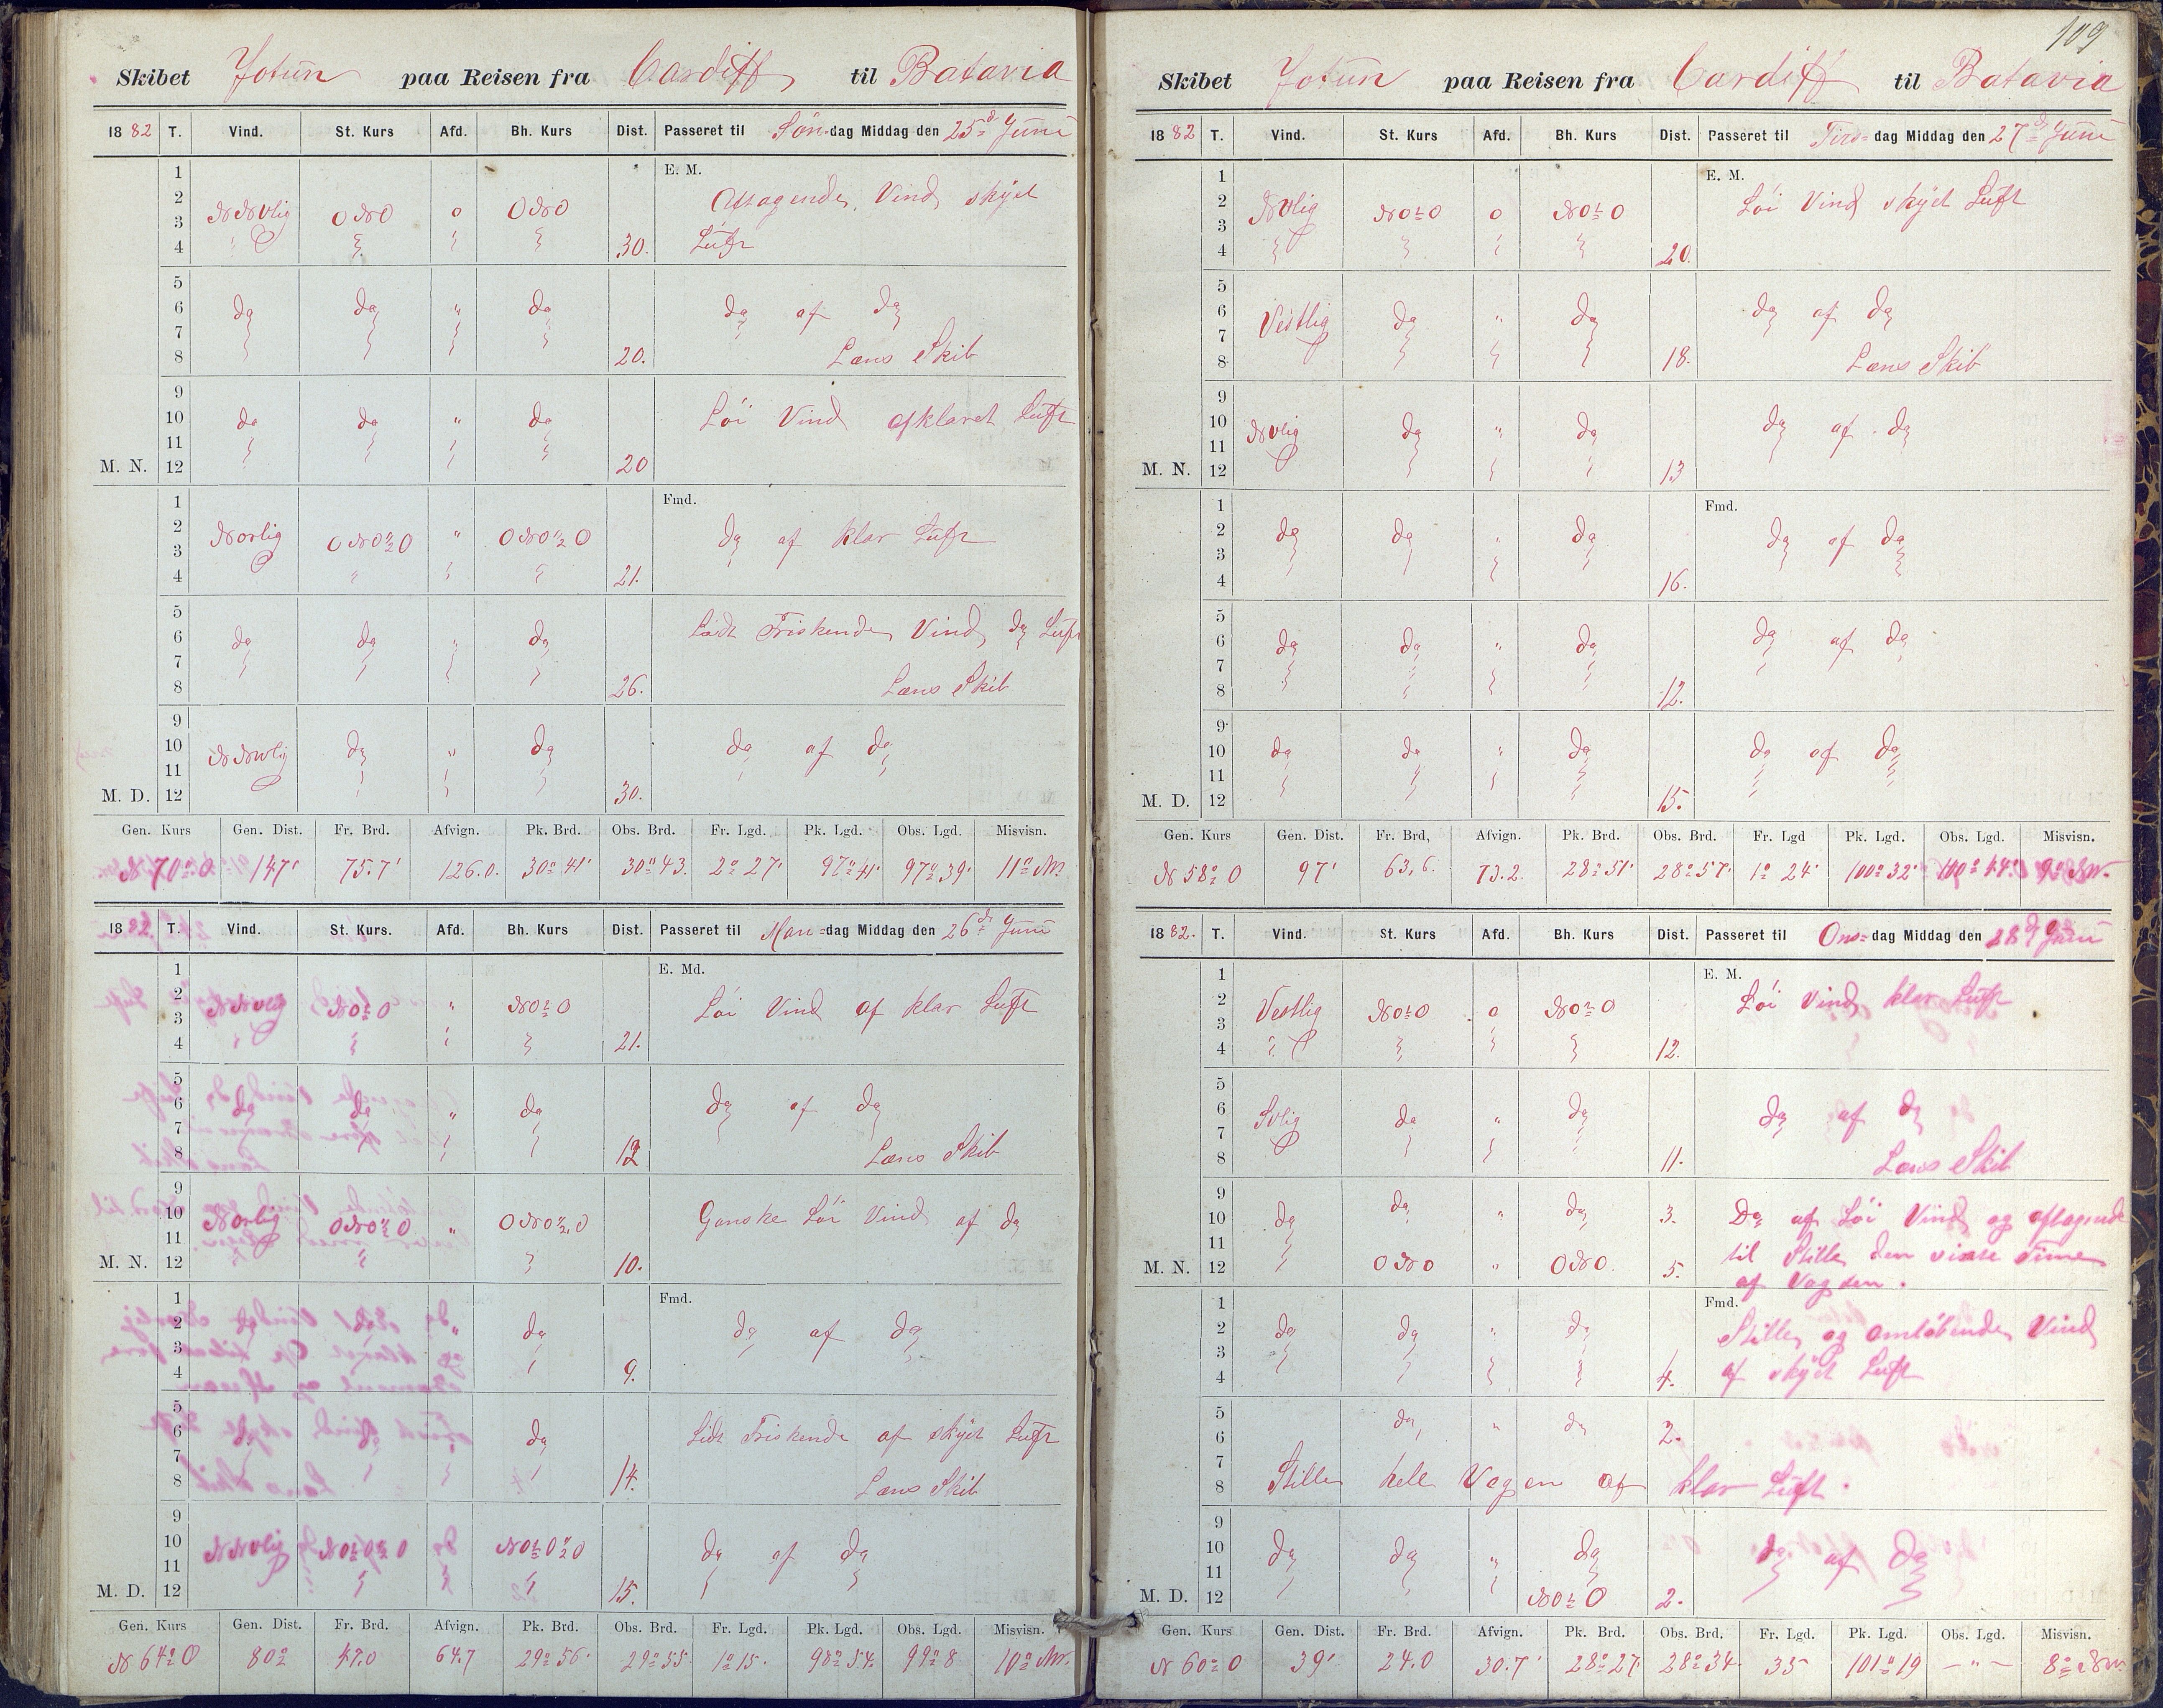 109
Skibet Jotun paa Reisen fra Cardiff til Batavia
1882 T. Vind. St. Kurs Afd. Bh. Kurs Dist. Passeret til Søn-dag Middag den 25d Juni
1 E. M.
2 NNvlig ONO o ONO Aftagende Vind skyet
3
4 30. Luft
5
6 do do " do do af do
7
8 20. Læns Skib
9
10 do do " do Løi Vind afklaret Luft
11
M. N. 12 20
1 Fmd.
2 Norlig ONO½O " ONO½O do af klar Luft
3
4 21.
5
6 do do " do Lidt Friskende Vind do Luft
7
8 26. Læns Skib
9
10 NNvlig do " do do af do
11
M. D. 12 30.
Gen. Kurs Gen. Dist. Fr. Brd. Afvign. Pk. Brd. Obs. Brd. Fr. Lgd. Pk. Lgd. Obs. Lgd. Misvisn.
N 70° O 147' 75.7' 126.0. 30° 41' 30° 43. 2° 27' 97° 41' 97° 39' 11° NW
1882 T. Vind. St. Kurs. Afd. Bh. Kurs Dist. Passeret til Man-dag Middag den 26d Juni
1 E. Md.
2 NNvlig NOtO " NOtO Løi Vind af klar Luft
3
4 21.
5
6 do do " do do af do
7
8 12 Læns Skib
9
10 Norlig ONO½O " ONO½O Ganske Løi Vind af do
11
M. N. 12 10.
1 Fmd.
2 do do " do do af do
3
4 9.
5
6 do do do Lidt Friskende af skyet Luft
7
8 14. Læns Skib
9
10 NNvlig NOtO½O NOtO½O do af do
11
M. D. 12 15.
Gen. Kurs Gen. Dist. Fr. Brd. Afvign. Pk. Brd. Obs. Brd. Fr. Lgd. Pk. Lgd. Obs. Lgd. Misvisn.
N 64° O 80° 47.0 64.7 29° 56' 29° 55 1° 15. 98° 54. 99° 8 10° NW.
Skibet Jotun paa Reisen fra Cardiff til Batavia
1882 T. Vind. St. Kurs Afd. Bh. Kurs Dist. Passeret til Tirs-dag Middag den 27d Juni
1 E. M.
2 Nvlig NOtO o NOtO Løi Vind skyet Luft
3
4 20.
5
6 Vestlig do " do do af do
7
8 18. Læns Skib
9
10 Nvlig do " do do af do
11
M. N. 12 13
1 Fmd.
2 do do " do do af do
3
4 16.
5
6 do do " do do af do
7
8 12.
9
10 do do " do do af do
11
M. D. 12 15.
Gen. Kurs Gen. Dist. Fr. Brd, Afvign. Pk. Brd. Obs. Brd. Fr. Lgd Pk. Lgd. Obs. Lgd. Misvisn.
N 58° O 97' 63,6. 73.2. 28° 51' 28° 57' 1° 24' 100° 32' 100° 44' 9° NW.
1882. T. Vind. St. Kurs Afd. Bh. Kurs Dist. Passeret til Ons-dag Middag den 28d Juni
1 E. M.
2 Vestlig NOtO o NOtO Løi Vind klar Luft
3
4 12.
5
6 Svlig do " do do af do
7
8 11. Læns Skib
9
10 do do " do 3. Do af Løi Vind og aftagende
11 til Stille den Time
M. N. 12 ONO " ONO 5. af Vagden.
1 Fmd.
2 do do " do Stille og omløbende Vind
3
4 4. af skyet Luft
5 do " do 2.
6
7
8 Stille hele Vagen af klar Luft.
9
10 do do " do do af do
11
M. D. 12 NOtO 2.
Gen. Kurs Gen. Dist. Fr. Brd. Afvign. Pk. Brd. Obs. Brd. Fr. Lgd. Pk. Lgd. Obs. Lgd. Misvisn.
N 60° O 39' 24.0 30.7' 28° 27' 28° 34. 35 101° 19 — " — 8° NW